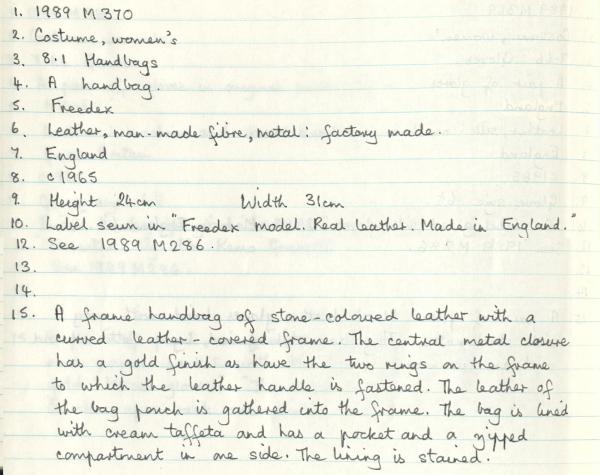 1. 1989 M 370
2. Costume, women's
3. 8.1 Handbags
4. A handbag.
5. Freedex
6. Leather, man-made fibre, metal: factory made.
7. England
8. c1965
9. Height 24cm Width 31cm
10. Label sewn in "Freedex model. Real leather. Made in England."
12. See 1989 M286.
13.
14.
15. A frame handbag of stone-coloured leather with a
curved leather-covered frame. The central metal closure
has a gold finish as have the two rings on the frame
to which the leather handle is fastened. The leather of
the bag pouch is gathered into the frame. The bag is lined
with cream taffeta and has a pocket and a zipped
compartment in one side. The lining is stained.